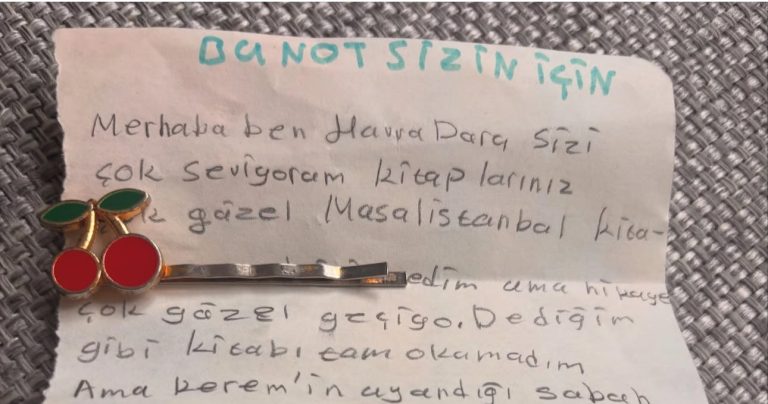 BU NOT SİZİN İÇİN
Merhaba ben Havva Dara sizi
çok seviyoram kitaplarınız
güzel Masalistanbal kita-
edim ama hikaye
çok güzel geçiyo. Dediğim
gibi kitabı tam okamadım
Ama kerem'in uyandığı sabah